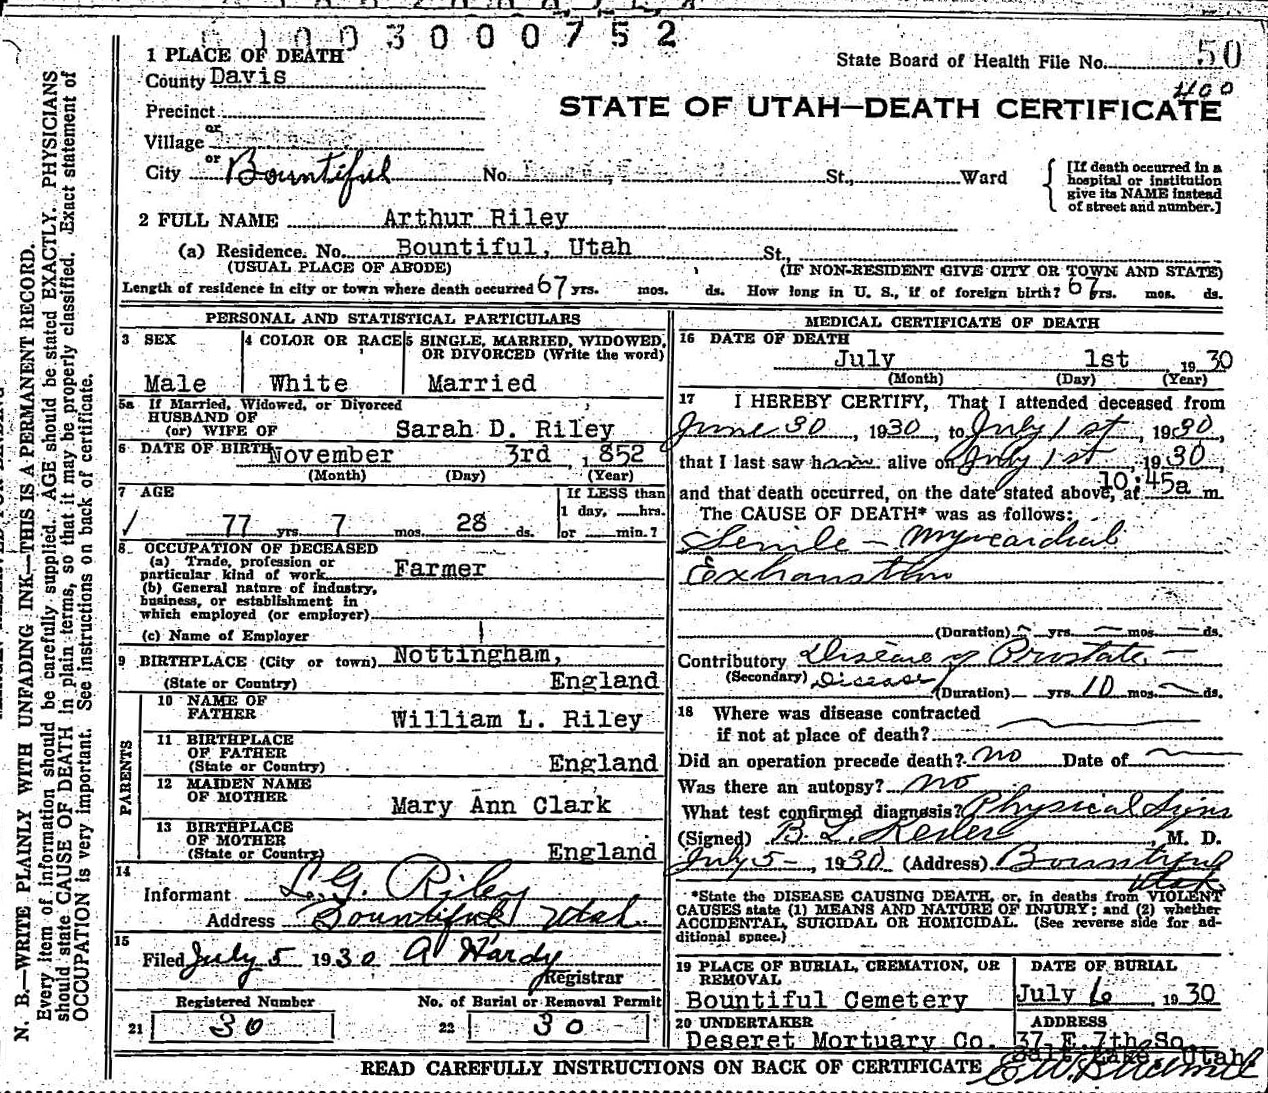 0 1 0 0 3 0 0 0 7 5 2
State Board of Health File No. 50
400
STATE OF UTAH—DEATH CERTIFICATE
1 PLACE OF DEATH
County Davis
Precinct
or
Village
or
City Bountiful No. St., Ward
[If death occurred in a
hospital or institution
give its NAME instead
of street and number.]
2 FULL NAME Arthur Riley
(a) Residence. No. Bountiful, Utah St.,
(USUAL PLACE OF ABODE) (IF NON-RESIDENT GIVE CITY OR TOWN AND STATE)
Length of residence in city or town where death occurred 67 yrs. mos. ds. How long in U. S., if of foreign birth? 67 yrs. mos. ds.
PERSONAL AND STATISTICAL PARTICULARS
3 SEX
Male
4 COLOR OR RACE
White
5 SINGLE, MARRIED, WIDOWED,
OR DIVORCED (Write the word)
Married
5a If Married, Widowed, or Divorced
HUSBAND OF
(or) WIFE OF Sarah D. Riley
6 DATE OF BIRTH November 3rd , 1852
(Month) (Day) (Year)
7 AGE
77 yrs. 7 mos. 28 ds.
If LESS than
1 day, hrs.
or min.?
8 OCCUPATION OF DECEASED
(a) Trade, profession or
particular kind of work Farmer
(b) General nature of industry,
business, or establishment in
which employed (or employer)
(c) Name of Employer
9 BIRTHPLACE (City or town) Nottingham,
(State or Country) England
PARENTS
10 NAME OF
FATHER William L. Riley
11 BIRTHPLACE
OF FATHER
(State or Country) England
12 MAIDEN NAME
OF MOTHER Mary Ann Clark
13 BIRTHPLACE
OF MOTHER
(State or Country) England
14
Informant L. G. Riley
Address Bountiful Utah
15
Filed July 5 1930 A Hardy
Registrar
Registered Number
21 30
No. of Burial or Removal Permit
22 30
MEDICAL CERTIFICATE OF DEATH
16 DATE OF DEATH
July 1st 1930
(Month) (Day) (Year)
17 I HEREBY CERTIFY, That I attended deceased from
June 30 , 1930 , to July 1st , 1930,
that I last saw him alive on July 1st , 1930,
and that death occurred, on the date stated above, at 10:45a m.
The CAUSE OF DEATH* was as follows:
Senile - Myocardial
Exhaustion
(Duration) — yrs. — mos. — ds.
Contributory Disease of Prostate —
(Secondary) Disease
(Duration) — yrs. 10 mos. — ds.
18 Where was disease contracted
if not at place of death?
Did an operation precede death? no Date of
Was there an autopsy? no
What test confirmed diagnosis? Physical Signs
(Signed) B. L. Kesler M. D.
July 5 - 1930 (Address) Bountiful
Utah
*State the DISEASE CAUSING DEATH, or, in deaths from VIOLENT
CAUSES state (1) MEANS AND NATURE OF INJURY; and (2) whether
ACCIDENTAL, SUICIDAL OR HOMICIDAL. (See reverse side for ad-
ditional space.)
19 PLACE OF BURIAL, CREMATION, OR
REMOVAL
Bountiful Cemetery
DATE OF BURIAL
July 6 , 1930
20 UNDERTAKER
Deseret Mortuary Co.
ADDRESS
37 E. 7th So.
Salt Lake, Utah
READ CAREFULLY INSTRUCTIONS ON BACK OF CERTIFICATE
N. B.—WRITE PLAINLY WITH UNFADING INK—THIS IS A PERMANENT RECORD.
Every item of information should be carefully supplied. AGE should be stated EXACTLY. PHYSICIANS
should state CAUSE OF DEATH in plain terms, so that it may be properly classified. Exact statement of
OCCUPATION is very important. See instructions on back of certificate.